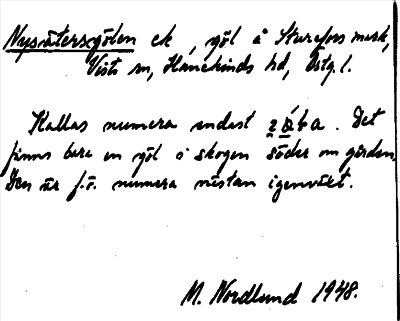 Nysätersgölen ek, göl å Sturefors mark,
Vists sn, Hanekinds hd, Östg.l.
Kallas numera endast . Det
finns bara en göl i skogen söder om gården.
Den är f.ö. numera nästan igenväxt.
M. Nordlund 1948.